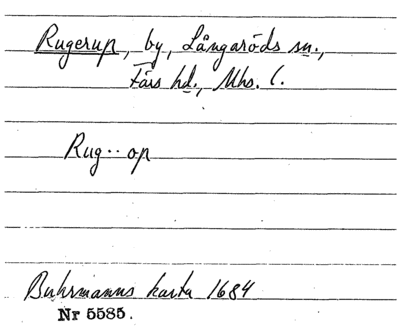 Rugerup, by, Långaröds sn.,
Färs hd., Mhs. l.
Rug·· op
Buhrmanns karta 1684
Nr 5585.